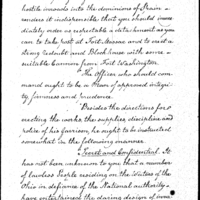 hostile inroads into the dominions of Spain
renders it indispensible that you should imme-
diately order as respectable a detachment as you
can to take post at Fort Massac and to erect a
strong redoubt and Blockhouse with some
suitable Cannon from Fort Washington.
"The Officer who should com-
mand ought to be a Man of approved integri-
ty firmness and Prudence.
"Besides the directions for e-
recting the works the supplies, discipline and
police of his garrison, he ought to be instructed
somewhat in the following manner.
"Secret and Confidential. It
has not been unknown to you that a number
of lawless People residing on the Waters of the
Ohio in defiance of the National authority
have entertained the daring design of inva-